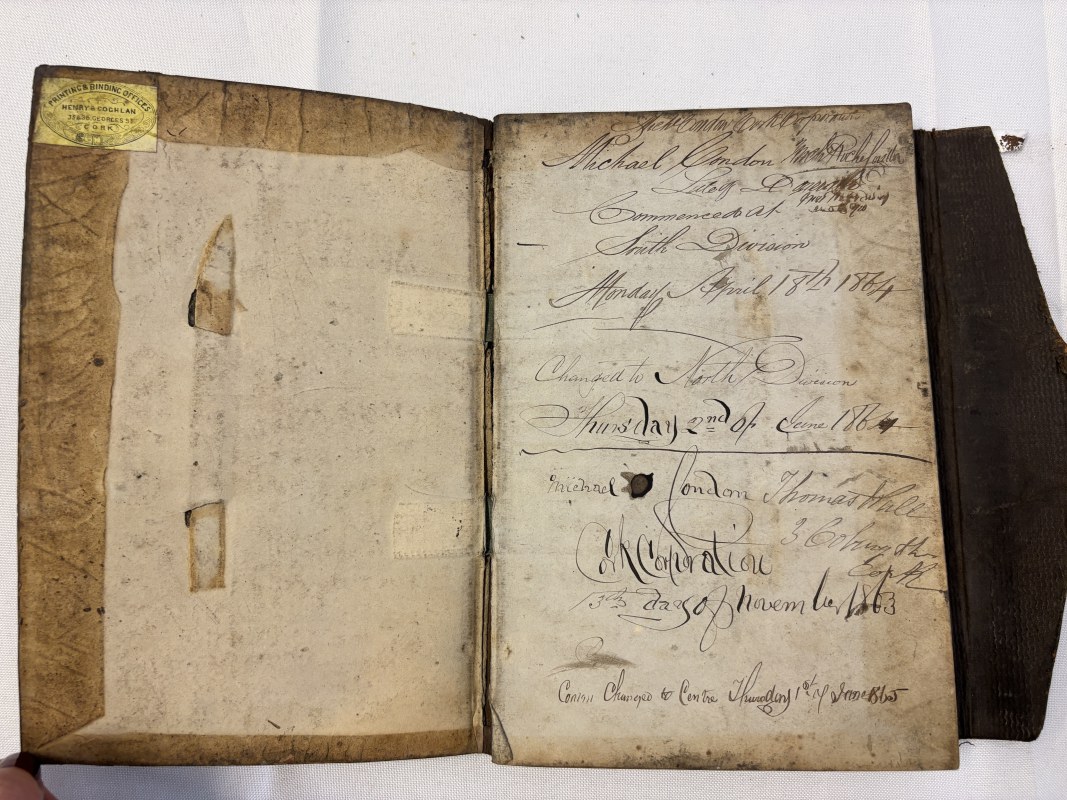 PRINTING & BINDING OFFICES
HENRY & COGHLAN
GEORGES ST
CORK
Condon Cork
Michael Condon North
Commenced at
South Division
Monday April 18th 1864
Changed to North Division
Thursday 2nd of June 1864
Michael Condon Thomas Wall
3 Coburg St
Cork
Cork Corporation
13th day of November 1863
Changed to Centre Thursday 1st of June 1865